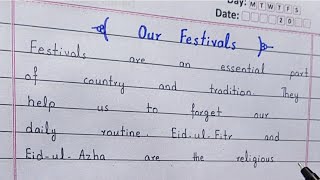 Day: M T W T F S
Date: 20
Our Festivals
Festivals are an essential part
of country and tradition. They
help us to forget our
daily routine. Eid-ul-Fitr and
Eid-ul-Azha are the religious